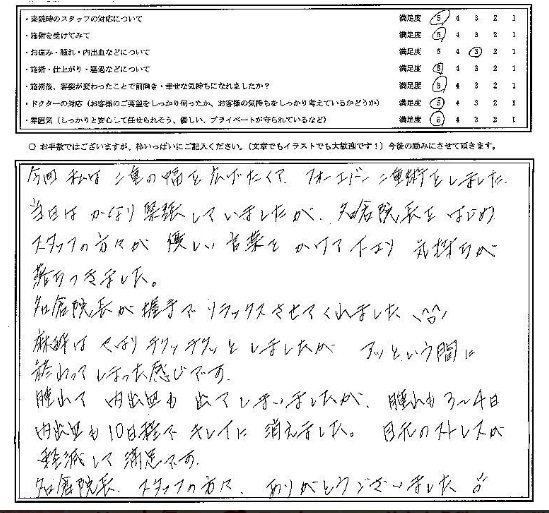 ・来院時のスタッフの対応について 満足度 5 4 3 2 1
・施術を受けてみて 満足度 5 4 3 2 1
・お痛み・腫れ・内出血などについて 満足度 5 4 3 2 1
・施術・仕上がり・経過などについて 満足度 5 4 3 2 1
・施術後、容姿が変わったことで前向き・幸せな気持ちになれましたか？ 満足度 5 4 3 2 1
・ドクターの対応（お客様のご要望をしっかり伺ったか、お客様の気持ちをしっかり考えているかどうか） 満足度 5 4 3 2 1
・雰囲気（しっかりと安心して任せられそう、優しい、プライベートが守られているなど） 満足度 5 4 3 2 1
○ お手数ではございますが、枠いっぱいにご記入ください。（文章でもイラストでも大歓迎です！）今後の励みにさせて頂きます。
今回 私は 二重の幅を広げたくて、フォーエバー二重術をしました。
当日は かなり緊張していましたが、名倉院長を はじめ
スタッフの方々が 優しい 言葉を かけて下さり 気持ちが
落ちつきました。
名倉院長が 握手で リラックスさせてくれました (^^)
麻酔は やはり チクッチクッと しましたが アッという間に
終わってしまった感じです。
腫れて 内出血も 出てしまいましたが、腫れも 3〜4日
内出血も 10日程で キレイに 消えました。 日々のストレスが
軽減して 満足です。
名倉院長、スタッフの方々、ありがとうございました